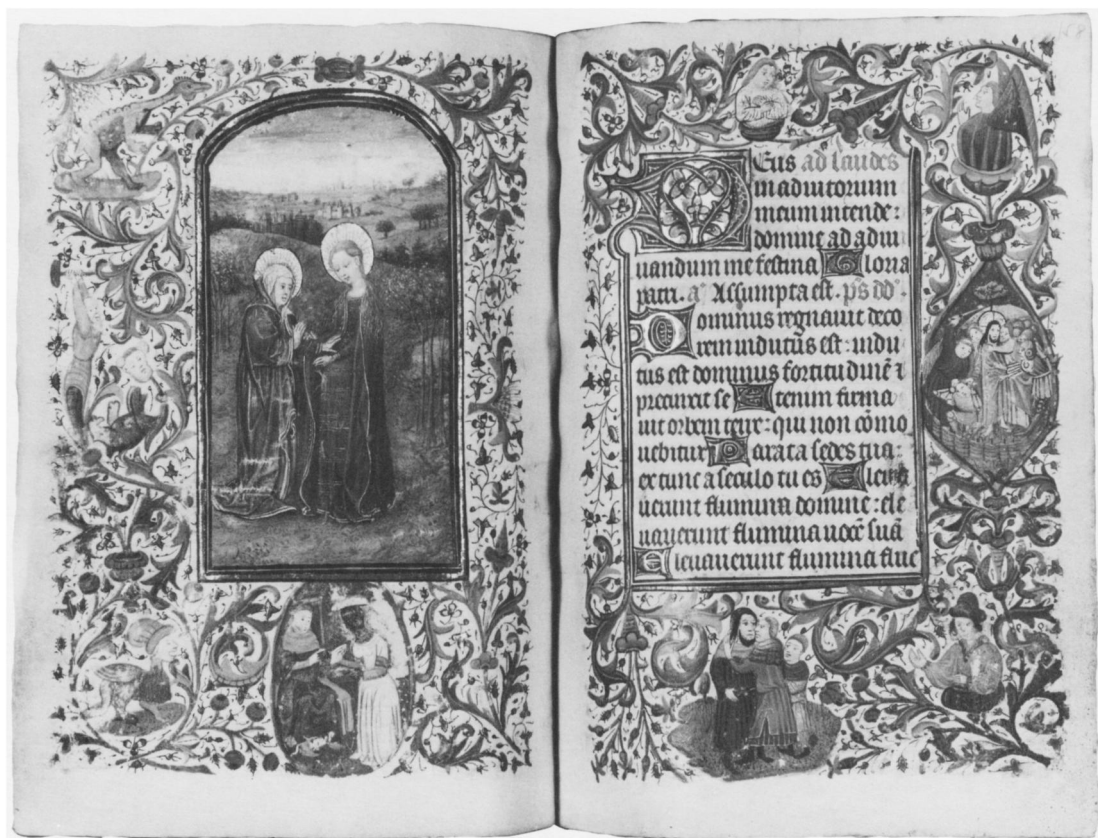 Deus ad laudes
in adiutorium
meum intende:
domine ad adiu
uandum me festina Gloria
patri. aͣ Assumpta est. ps dd᷒.
Dominus regnauit deco
rem indutus est: indu
tus est dominus fortitudinē ⁊
precinxit se Etenim firma
uit orbem terre: qui non cōmo
uebitur Parata sedes tua
ex tunc a seculo tu es Eleua
uerunt flumina domine: ele
uauerunt flumina uocē suā
Eleuauerunt flumina fluc